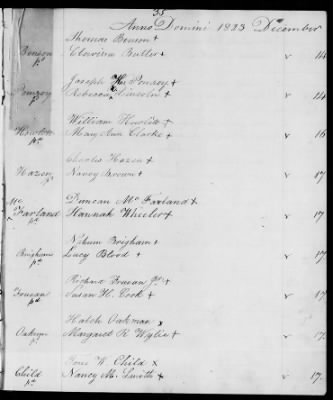 35
Anno Domini 1823 December
Thomas Benson +
Benson Clarissa Butler + v 14
pd
Joseph H. Pomroy +
Pomroy Rebecca Lincoln + v 14
pd
William Howlett +
Howlett Mary Ann Clarke + v 16
pd
Charles Hazen +
Hazen Nancy Brown + v 17
pd
Mc Duncan McFarland +
Farland Hannah Wheeler + v 17
pd
Nahum Brigham +
Brigham Lucy Blood + v 17
pd
Richard Jr +
Susan H. Cook + v 17
pd
Hatch Oakman x
Oakman Margaret R Wylie + v 17
pd
W Child x
Child Nancy M. Smith + v 17
pd